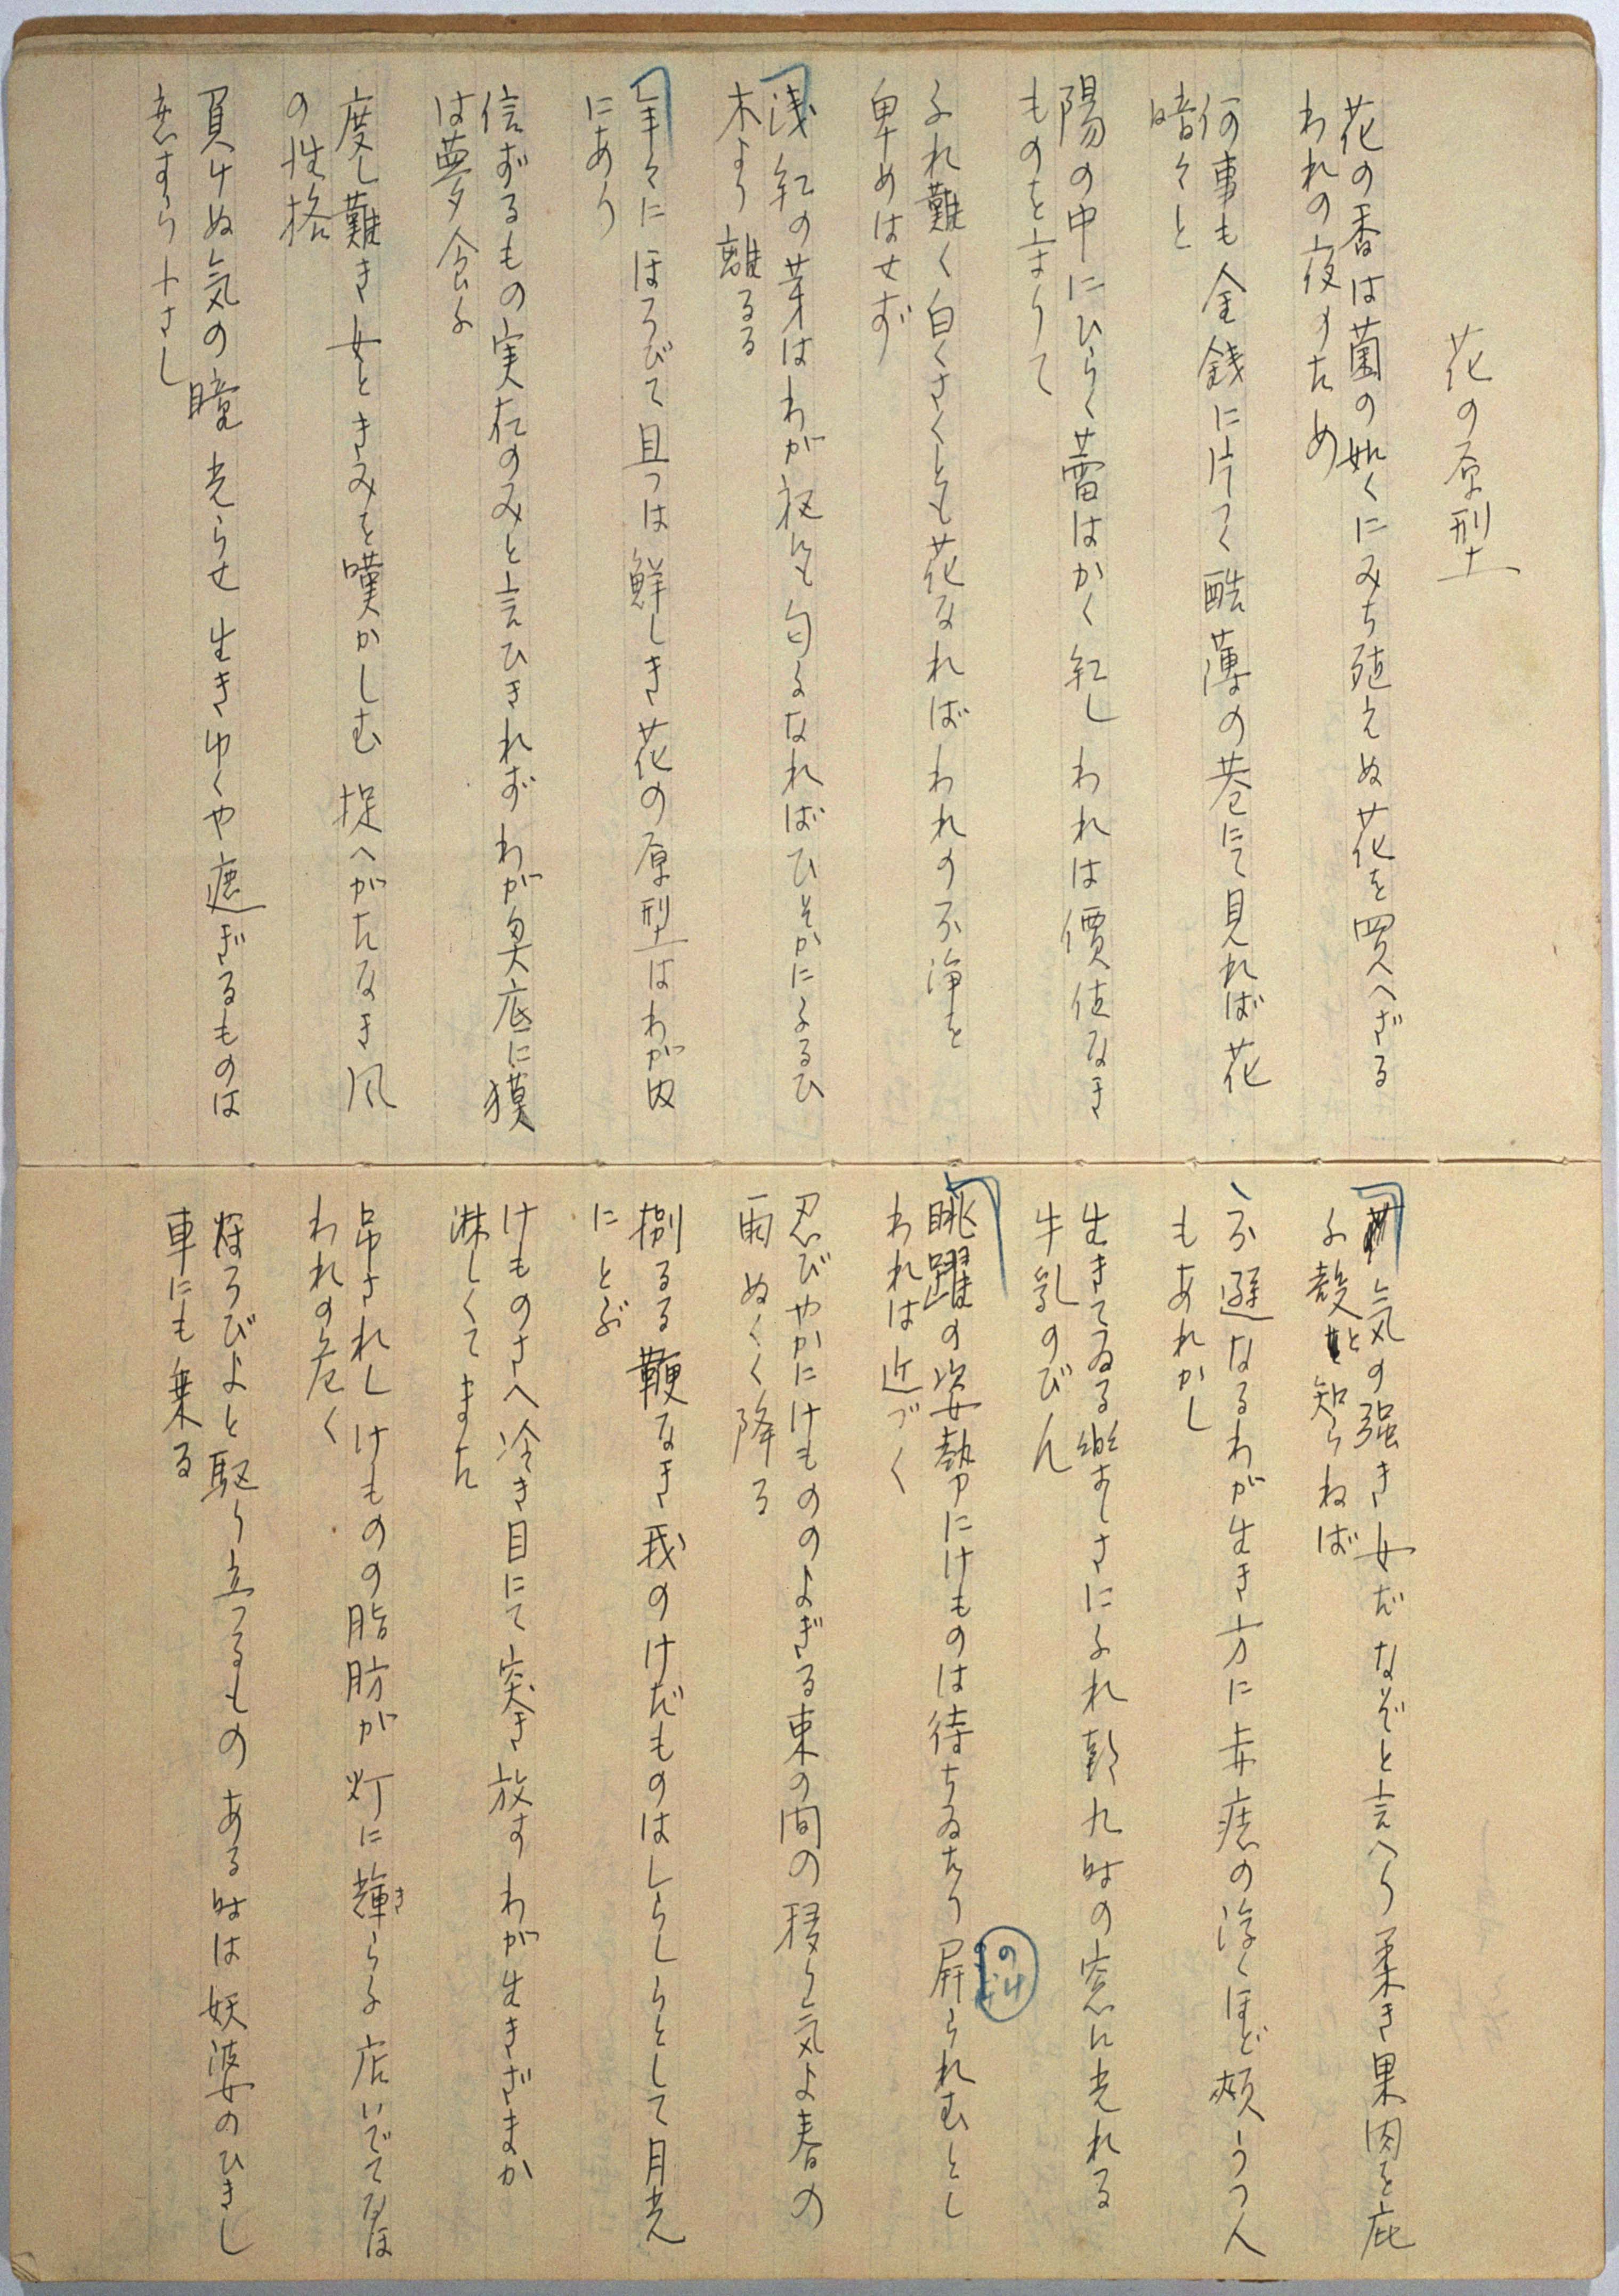 花の原型
花の香は菌の如くにみち殖えぬ花を買へざる
われの夜のため
何事も金銭に片つく酷薄の巷にて見れば花
暗々と
陽の中にひらく蕾はかく紅しわれは價値なき
ものを守りて
ふれ難く白くさくとも花なればわれの不浄を
卑めはせず
浅紅の芽はわが衩にも匂ふなればひそかにふるひ
木より離るる
年々にほろびて且つは鮮しき花の原型はわが内
にあり
信ずるもの実在のみと言ひきれずわが奥底に獏
は夢食ふ
度し難き女ときみを嘆かしむ捉へがたなき風
の性格
負けぬ気の瞳光らせ生きゆくや遮ぎるものは
恋すら小さし
気の强き女だなぞと言へり柔き果肉を庇
ふ殻と知らねば
不遜なるわが生き方に赤痣の浮くほど頰うつ人
もあれかし
生きてゐる樂しさにふれ朝九時の窓に光れる
牛乳のびん
眺躍の姿勢にけものは待ちゐたり屛られむとし
のけ
われは近づく
忍びやかにけもののよぎる束の間の稜り気よ春の
雨ぬくく降る
捌るる鞭なき我のけだものはしらしらとして月光
にとぶ
けものさへ冷き目にて突き放すわが生きざまか
淋しくてまた
吊されしけものの脂肪が灯に輝らふ店いでてなほ
き
われの危く
ほろびよと駆り立つるものある時は妖婆のひきし
車にも乗る